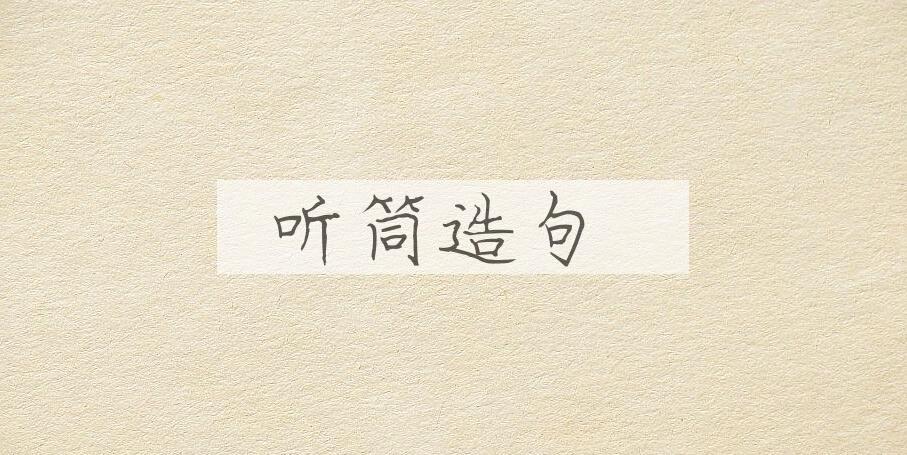 听筒造句